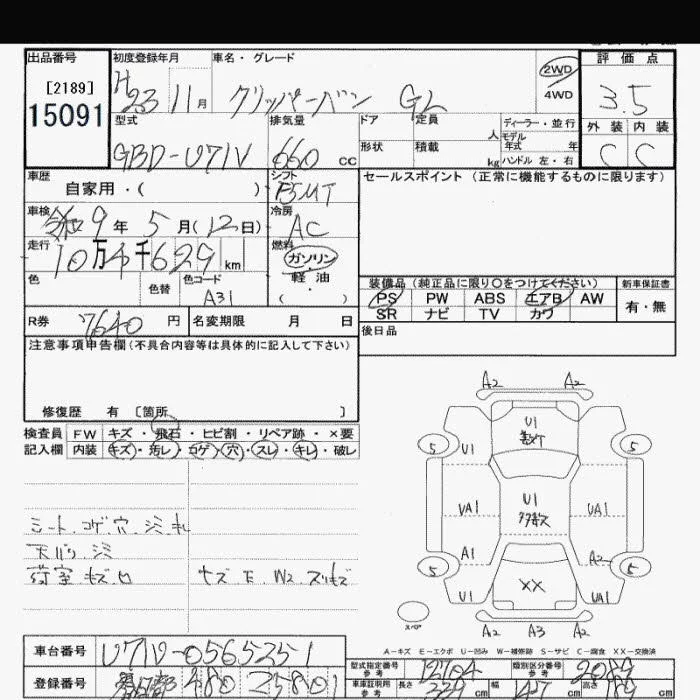 出品番号 初度登録年月 車名・グレード 2WD 評価点
[2189] H23 11月 クリッパーバン GL 4WD 3.5
15091
型式 排気量 ドア 定員 人 ディーラー・並行 外装 内装
GBD-U71V 660 cc 形状 積載 kg モデル年式 年 C C
ハンドル 左・右
車歴 シフト セールスポイント (正常に機能するものに限ります)
自家用・( ) F5MT
車検 令和9年5月(12日) 冷房 AC
走行 10万4千629km 燃料 ガソリン
軽油
( )
色 色替 色コード A31
装備品 (純正品に限り○をつけてください) 新車保証書
PS PW ABS エアB AW 有・無
SR ナビ TV カワ
R券 7640円 名変期限 月 日 後日品
注意事項申告欄(不具合内容等は具体的に記入して下さい)
修復歴 有 [箇所 ]
検査員 FW キズ・飛石・ヒビ割・リペア跡・×要
記入欄 内装 キズ・汚レ・コゲ・穴・スレ・キレ・破レ
シート、コゲ、穴、シミ、キレ
天バリ、シミ
荷室 キズ
A2 A2
U1
5 U1 5
U1
UA1 UA1
A1 A2
5 XX 5
U1 UA1
スペア
A2 A3 A2
A-キズ E-エクボ U-凹み W-補修跡 S-サビ C-腐食 XX-交換済
車台番号 U71V-0565251 型式指定番号 参考 12704 類別区分番号 参考
登録番号 480 車車証明用 参考 長さ 339cm 幅 147 高さ cm